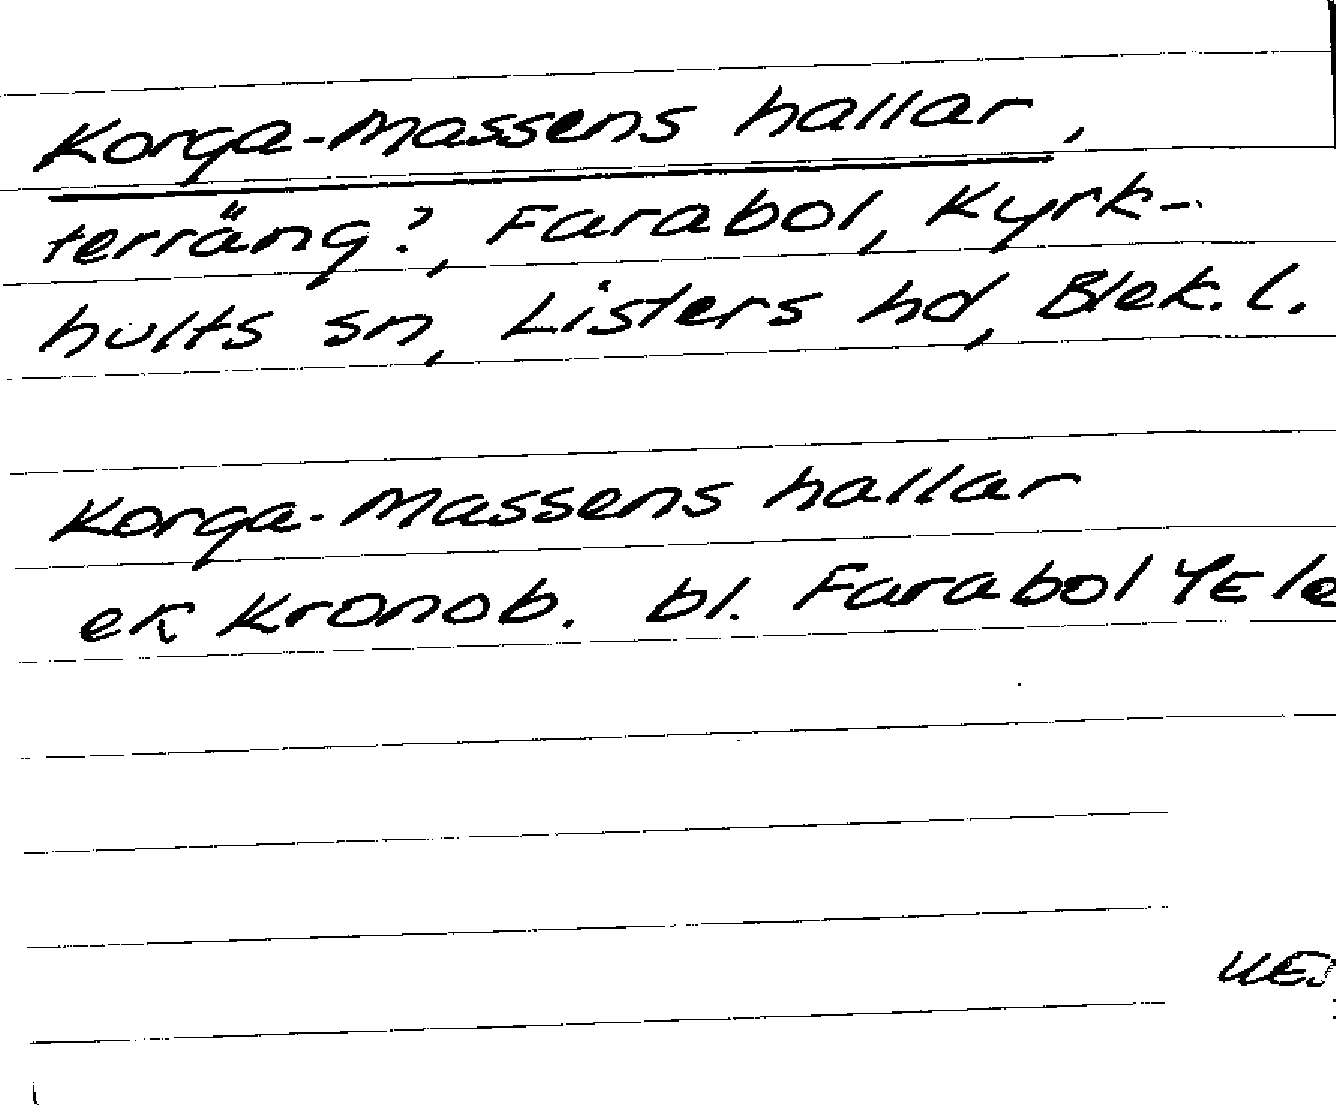 Korga-Massens hallar,
terräng?, Farabol, Kyrk-
hults sn, Listers hd, Blek. l.
Korga-Massens hallar
ek Kronob. bl. Farabol